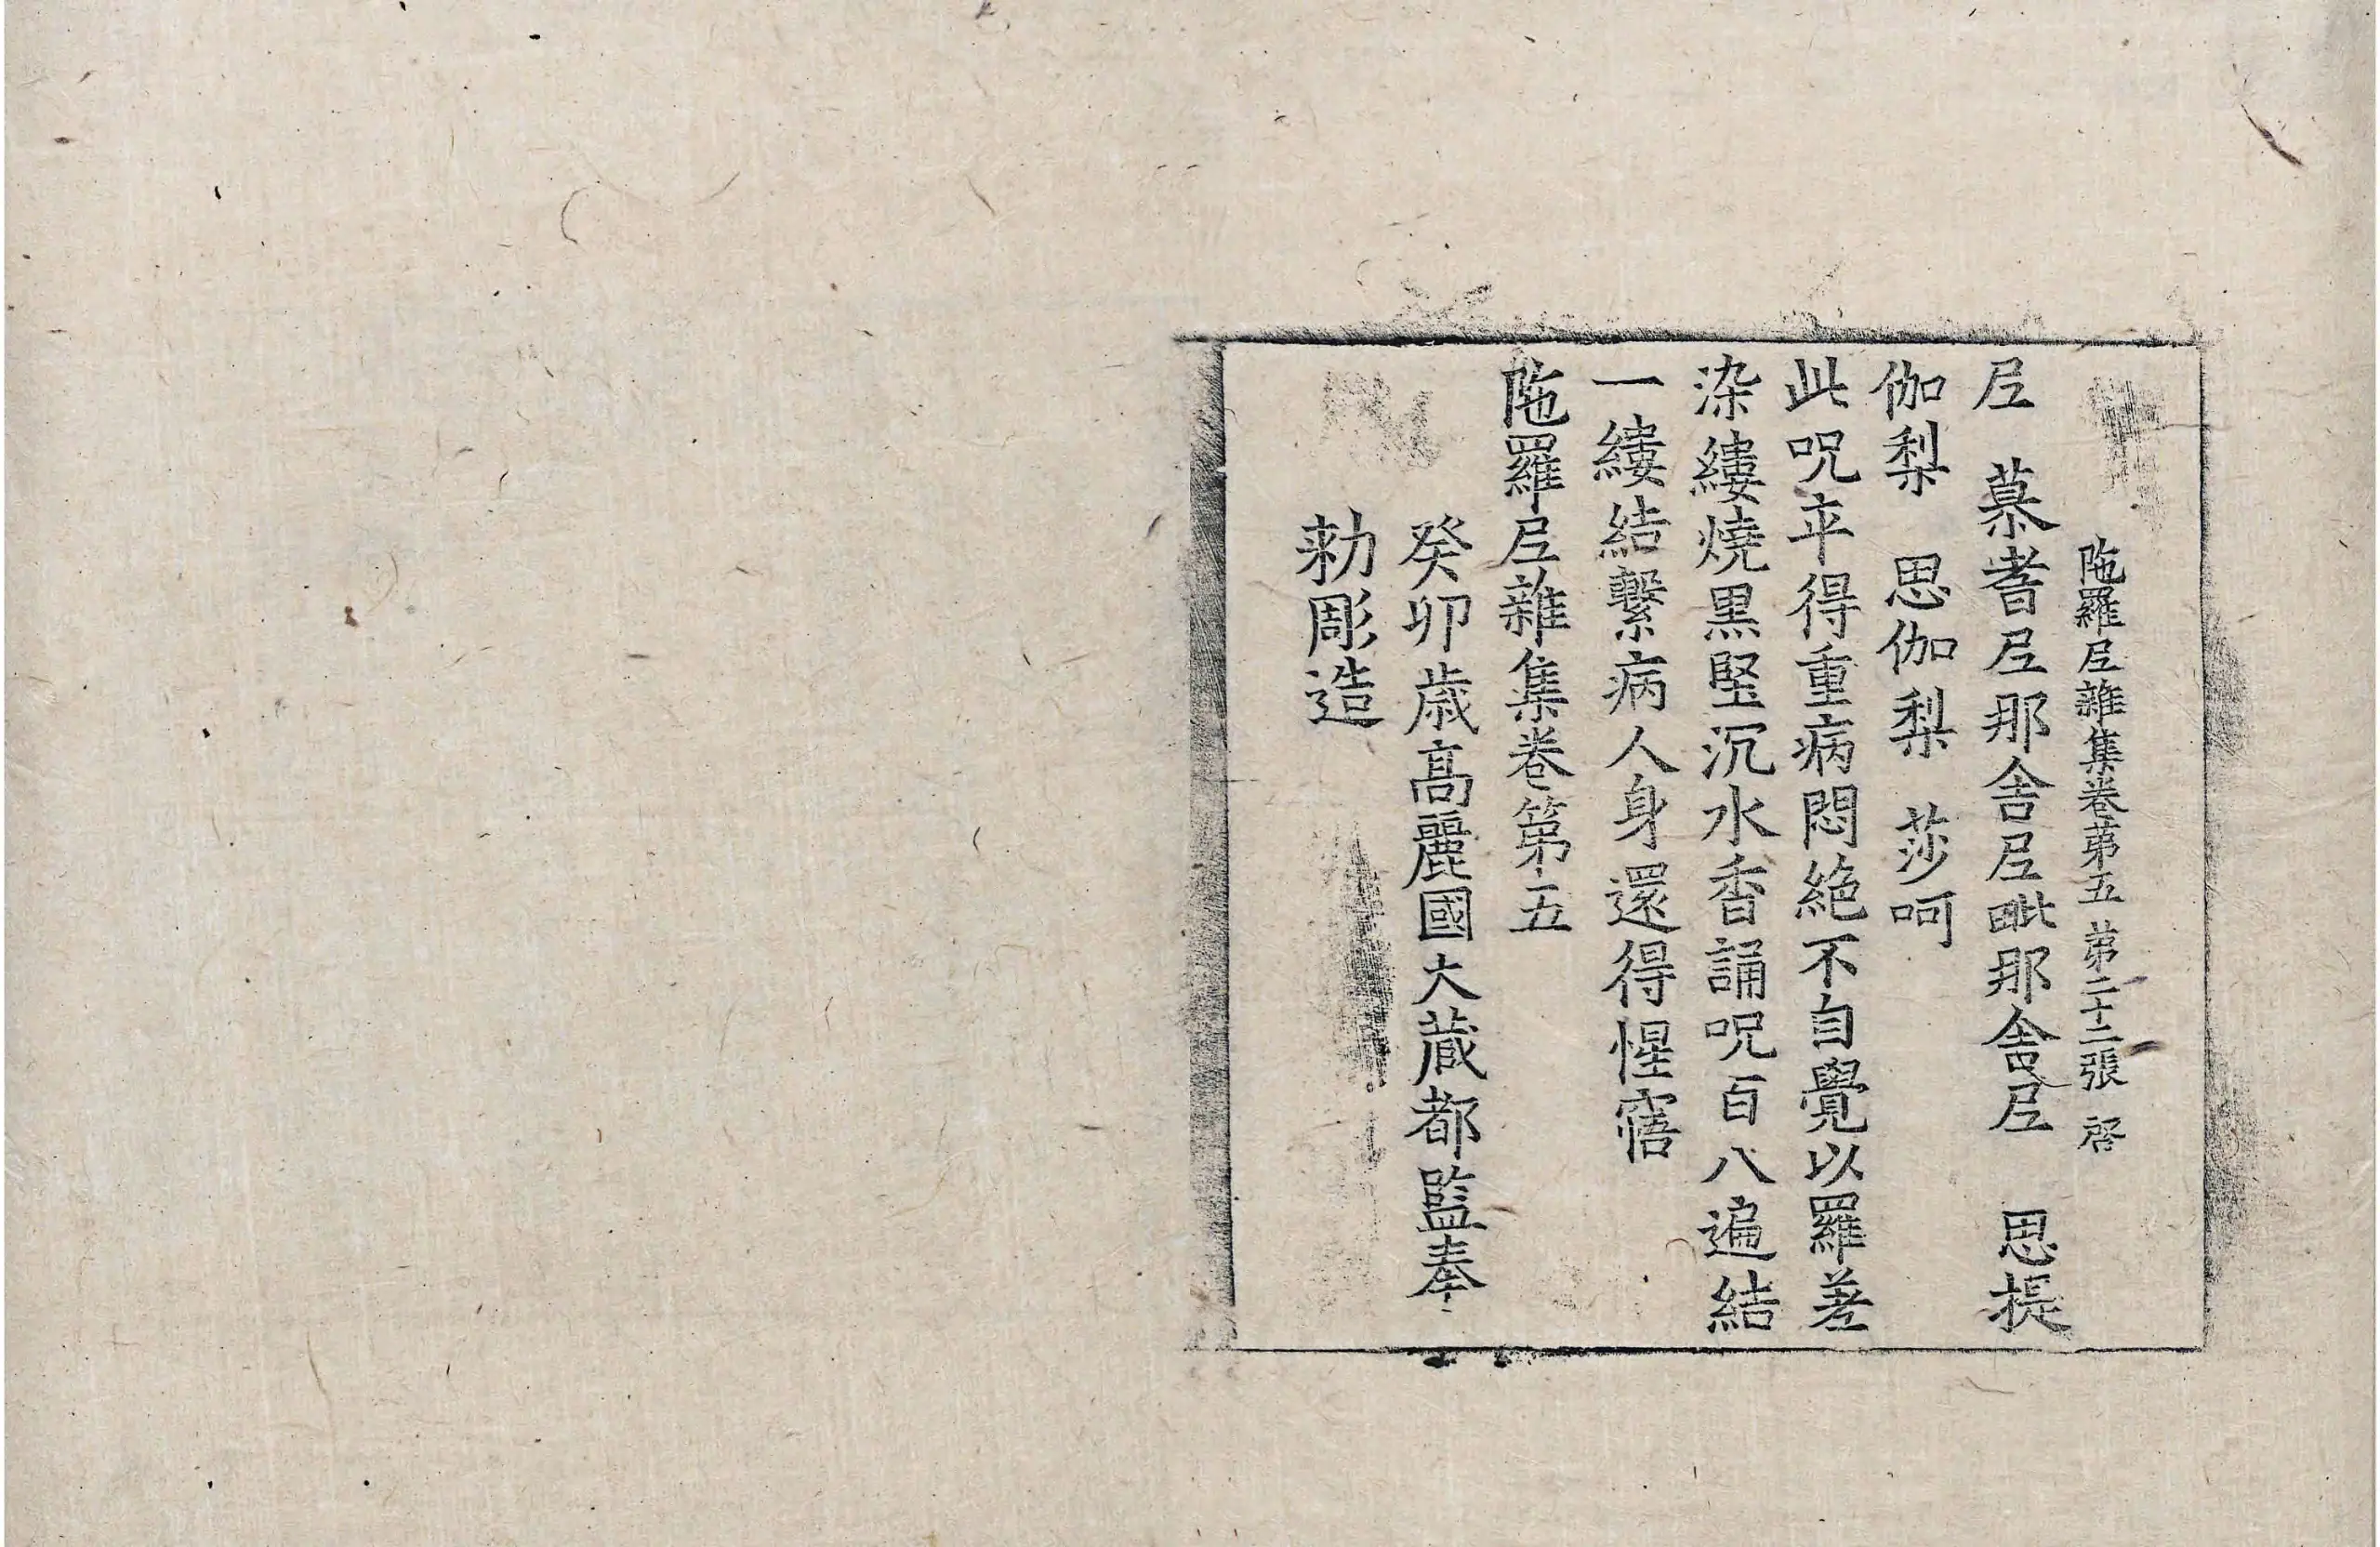 陁羅尼雜集卷第五 第二十二張 啓
尼 慕耆尼那舍尼毗那舍尼 思提
伽梨 思伽梨 莎呵
此呪卒得重病悶絶不自覺以羅差
染縷燒黒堅沉水香誦呪百八遍結
一縷結繫病人身還得惺寤
陁羅尼雜集卷第五
癸卯歳髙麗國大藏都監奉
勑彫造